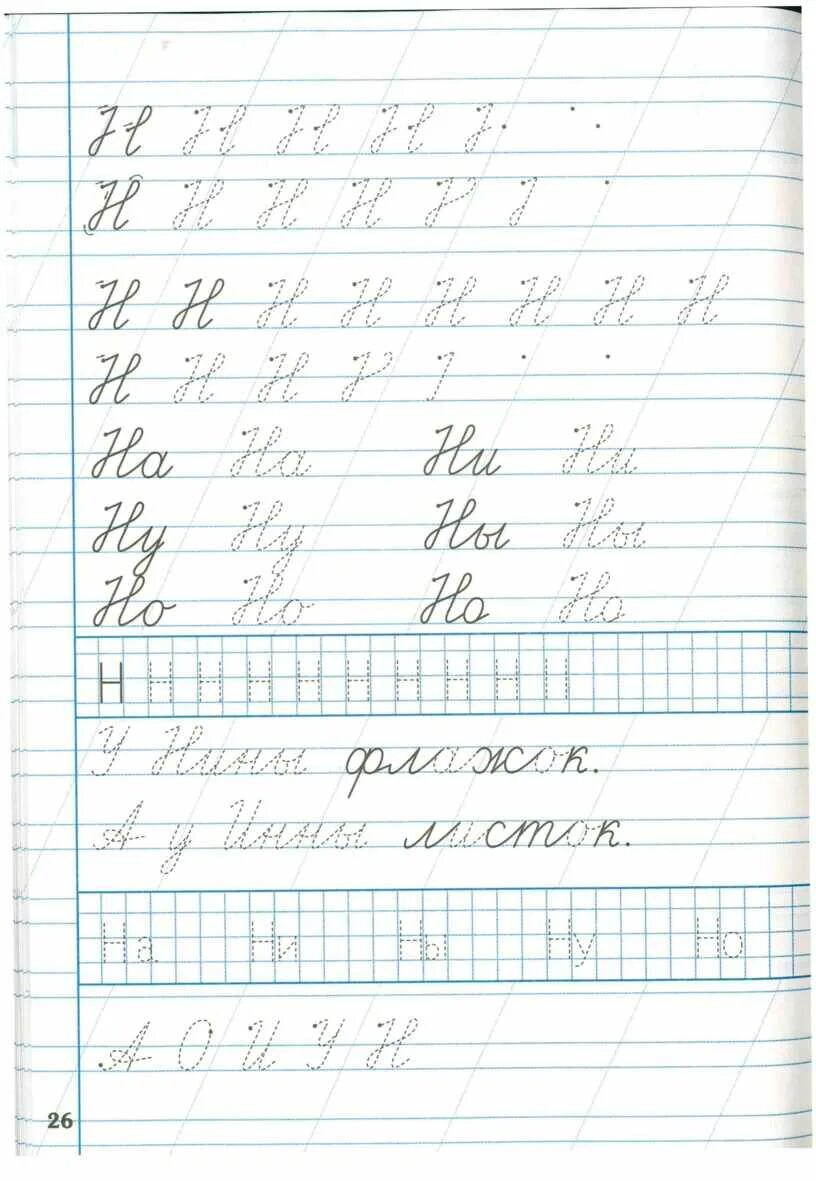 Н Н Н Н
Н Н Н Н
Н Н Н Н Н Н Н Н
Н Н Н
На На Ни Ни
Ну Ну Ны Ны
Но Но Но Но
Н Н Н Н Н Н Н Н Н
У Нины флажок.
А у Инны листок.
На Ни Ны Ну Но
А О И У Н
26